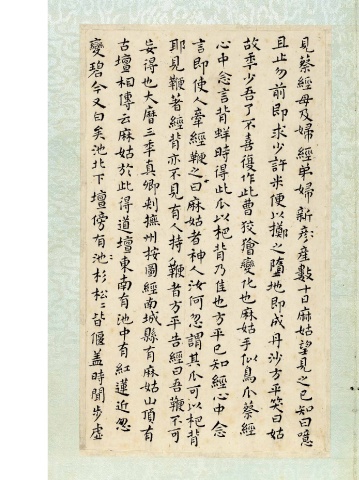 見蔡經母及婦經弟婦新產數十日麻姑望見之已知曰噫
且止勿前即求少許米便以擲之墮地即成丹沙方平笑曰姑
故秊少吾了不喜復作此曹狡獪變化也麻姑手似鳥爪蔡經
心中念言背蛘時得此爪以杷背乃佳也方平已知經心中念
言即使人牽經鞭之曰麻姑者神人汝何忽謂其爪可以杷背
耶見鞭著經背亦不見有人持鞭者方平告經曰吾鞭不可
妄得也大曆三秊真卿刺撫州按圖經南城縣有麻姑山頂有
古壇相傳云麻姑於此得道壇東南有池中有紅蓮近忽
變碧今又白矣池北下壇傍有池杉松〻皆偃蓋時聞步虛